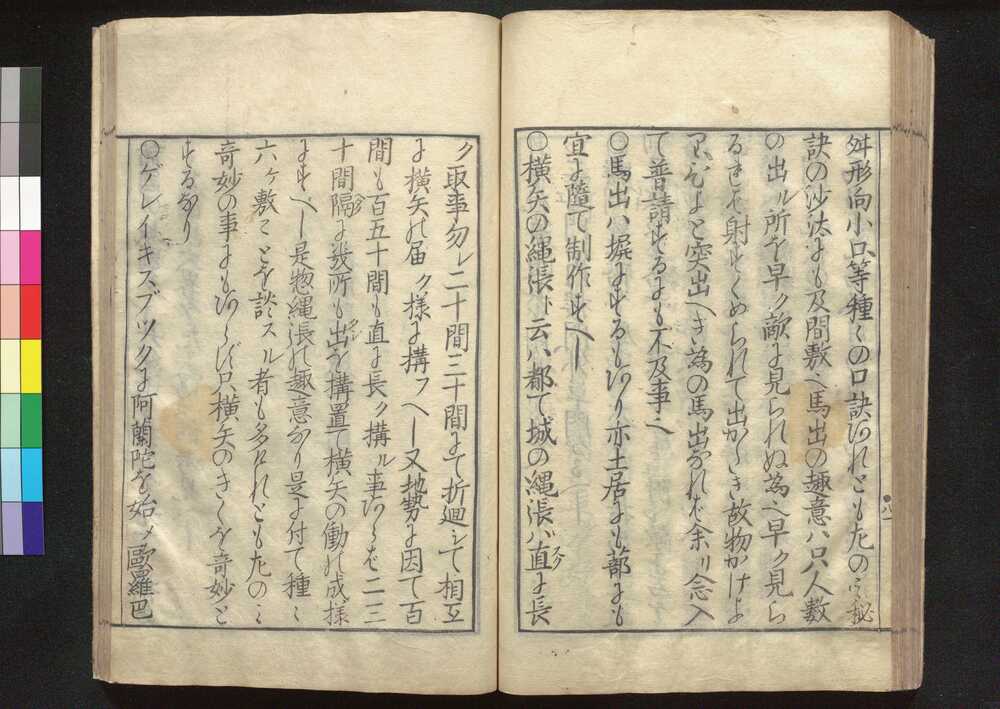 舛形向小口等種々の口訣有れともたのミ秘
訣の沙汰にも及間敷へ馬出の趣意ハ只人数
の出ル所を早ク敵に見られぬ為へ早ク見ら
るれは射すくめられて出かたき故物かけよ
りひよと突出へき為の馬出なれは余リ念入
て普請するにも不及事へ
○馬出ハ塀にするも有リ亦土居にも蔀にも
宜に随て制作すへし
○横矢の縄張ト云ハ都て城の縄張ハ直に長
ク取事勿レ二十間三十間にて折廻シて相互
に横矢の届ク様に構フへし又地勢に因て百
間も百五十間も直に長ク構ル事あらは二三
十間隔に幾所も出シを構置て横矢の働の成様
にすへし是惣縄張の趣意なり是に付て種々
六ケ敷コとを談スル者も多けれともたのミ
奇妙の事にもあらす只横矢のきくを奇妙と
するなり
○ゲレイキスブツクに阿蘭陀を始メ歐羅巴